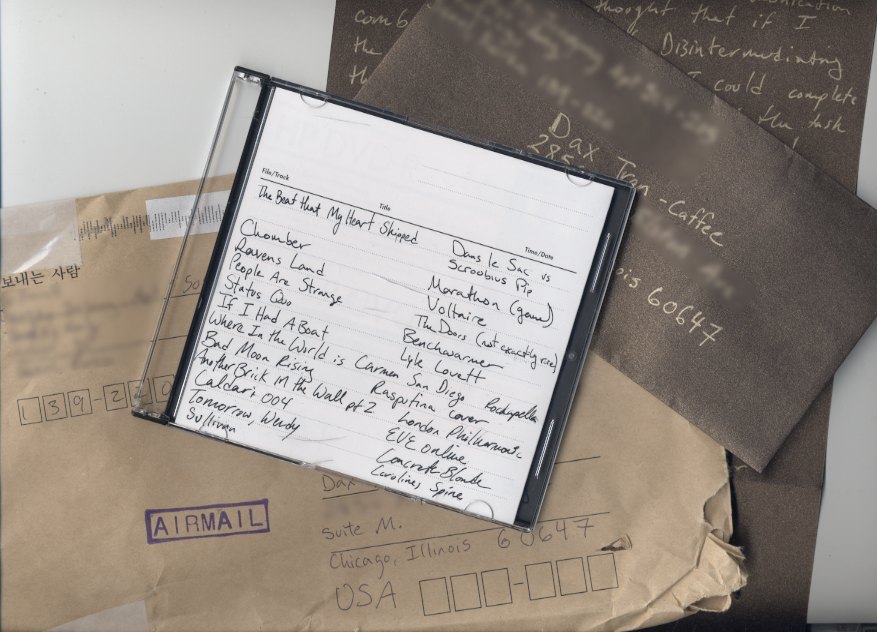 thought that if I
comb
the Disintermediating
I could complete
the task
Dax Tran-Caffee
Illinois 60647
File/Track Title Time/Date
The Beat that My Heart Skipped Dans le Sac vs
Scroobius Pip
Chomber Marathon (game)
Ravens Land Voltaire
People Are Strange The Doors (not exactly rare)
Status Quo Benchwarmer
If I Had A Boat Lyle Lovett
Where In the World is Carmen San Diego Rockapella
Bad Moon Rising Rasputina cover
Another Brick In the Wall pt 2 London Philharmonic
Caldari 004 EVE online
Tomorrow, Wendy Concrete Blonde
Sullivan Carolines Spine
보내는 사람
139-2
AIRMAIL
Dax
Suite M.
Chicago, Illinois 60647
USA